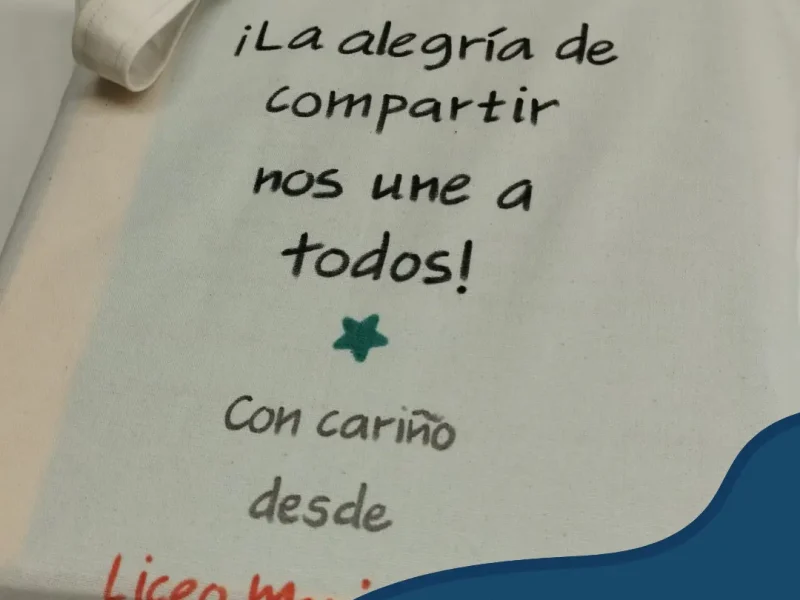 ¡La alegría de
compartir
nos une a
todos!
Con cariño
desde
Liceo